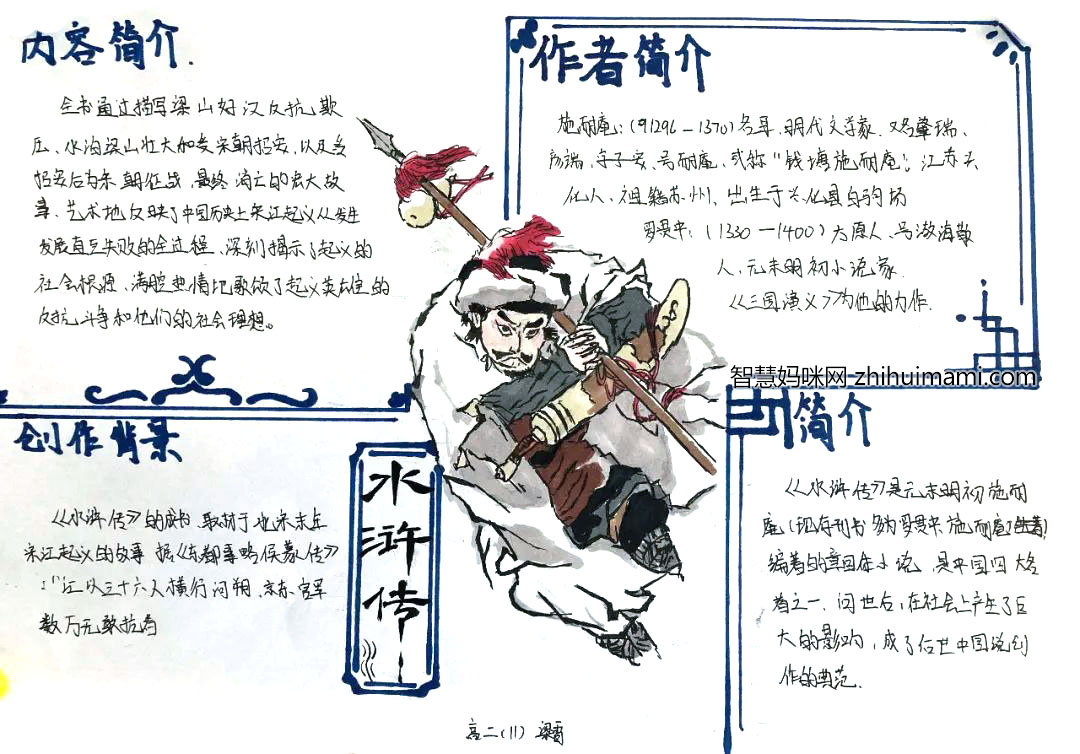 内容简介.
全书通过描写梁山好汉反抗欺
压、水泊梁山壮大和受宋朝招安,以及受
招安后为宋朝征战,最终消亡的宏大故
事、艺术地反映了中国历史上宋江起义从发生
发展直至失败的全过程、深刻揭示了起义的
社会根源、满腔热情地歌颂了起义英雄的
反抗斗争和他们的社会理想。
作者简介
施耐庵:(1296—1370)明代文学家.
号耐庵、或称“钱塘施耐庵”;江苏兴
化人、祖籍苏州,出生于兴化县白驹场
罗贯中:(1330—1400)太原人、号湖海散
人、元末明初小说家.
《三国演义》为他的力作.
智慧妈咪网-zhihuimami.com
创作背景
《水浒传》的成书、取材于北宋末年
宋江起义的故事 据《东都事略侯蒙传》
:“江以三十六人横行河朔、京东、官军
数万无敢抗者
水浒传
简介
《水浒传》是元末明初施耐
庵(现存刊书多为罗贯中施耐庵)
编著的章回体小说、是中国四大名
著之一.问世后,在社会上产生了巨
大的影响,成了后世中国说创
作的典范.
高二(11)